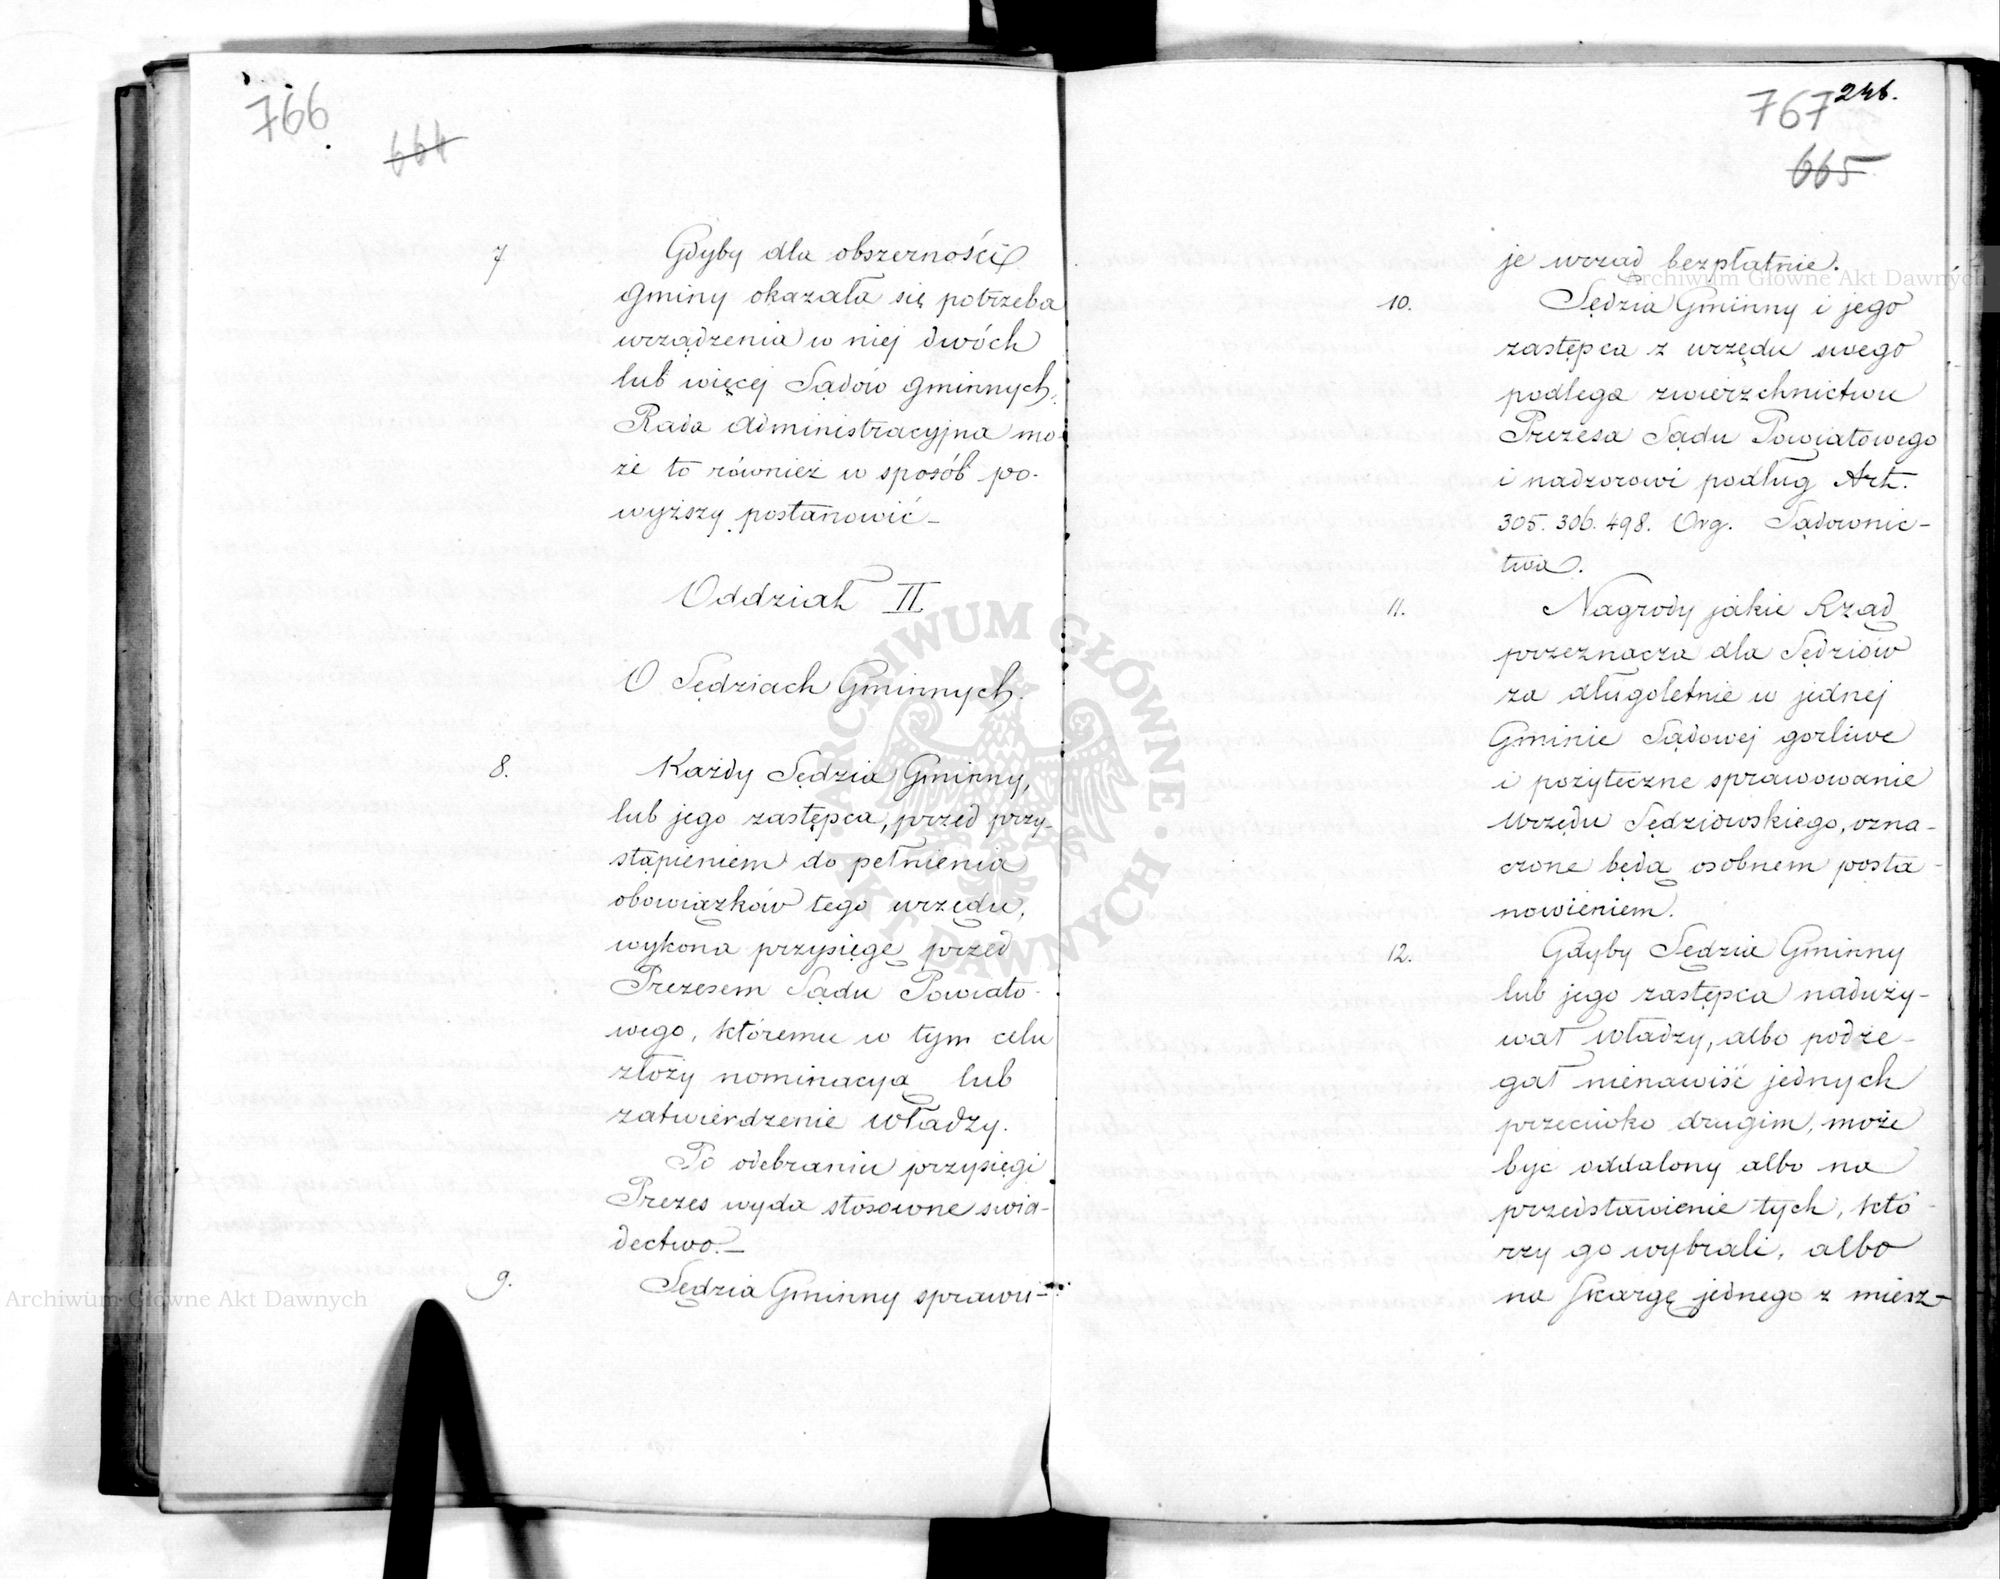 766
664
7 Gdyby dla obszerności
Gminy okazała się potrzeba
urządzenia w niej dwóch
lub więcej Sądów Gminnych,
Rada Administracyjna mo-
że to również w sposób po-
wyższy postanowić –
Oddział II
O Sędziach Gminnych.
8. Każdy Sędzia Gminny,
lub jego zastępca, przed przy-
stąpieniem do pełnienia
obowiązków tego urzędu,
wykona przysięgę przed
Prezesem Sądu Powiato-
wego, któremu w tym celu
złoży nominacyą lub
zatwierdzenie władzy.
Po odebraniu przysięgi
Prezes wyda stosowne swia-
dectwo. –
9. Sędzia Gminny sprawu-
767 246.
665
je urząd bezpłatnie.
10. Sędzia Gminny i jego
zastępca z urzędu swego
podlega zwierzchnictwu
Prezesa Sądu Powiatowego
i nadzorowi podług Art.
305. 306. 498. Org. Sądownic-
twa.
11. Nagrody jakie Rząd
przeznacza dla Sędziów
za długoletnie w jednej
Gminie Sądowej gorliwe
i pożyteczne sprawowanie
Urzędu Sędziowskiego, ozna-
czone będą osobnem posta-
nowieniem.
12. Gdyby Sędzia Gminny
lub jego zastępca naduży-
wał władzy, albo podże-
gał nienawiść jednych
przeciwko drugim, może
być oddalony albo na
przedstawienie tych, któ-
rzy go wybrali, albo
na skargę jednego z miesz-
Archiwum Główne Akt Dawnych
Archiwum Główne Akt Dawnych
ARCHIWUM GŁÓWNE AKT DAWNYCH